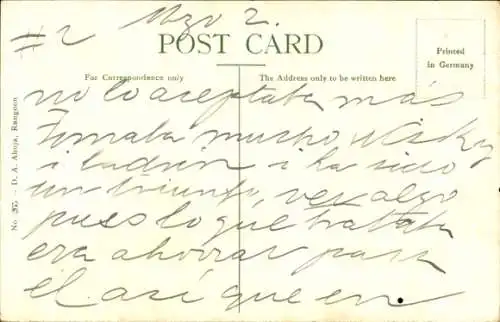 #2 Mzo 2.
POST CARD
Printed
in Germany
For Correspondence only
The Address only to be written here
No. 26. — D. A. Ahuja, Rangoon
no lo aceptaba más
Tomaba mucho Wisky
i ladrón i ha sido
un triunfo, ver algo
pues lo que trataba
era ahorrar para
él así que en